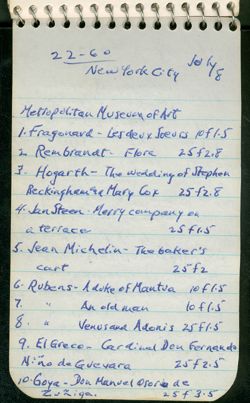 22-60 July 8
New York City
Metropolitan Museum of Art
1. Fragonard - Les deux Soeurs 10 f1.5
2. Rembrandt - Flora 25 f2.8
3. Hogarth - The wedding of Stephen
Beckingham & Mary Cox 25 f2.8
4. Jan Steen - Merry company on
a terrace 25 f1.5
5. Jean Michelin - The baker's
cart 25 f2
6. Rubens - A duke of Mantua 10 f1.5
7. " An old man 10 f1.5
8. " Venus and Adonis 25 f1.5
9. El Greco - Cardinal Don Fernando
Niño de Guevara 25 f2.5
10. Goya - Don Manuel Osorio de
Zuñiga. 25 f3.5